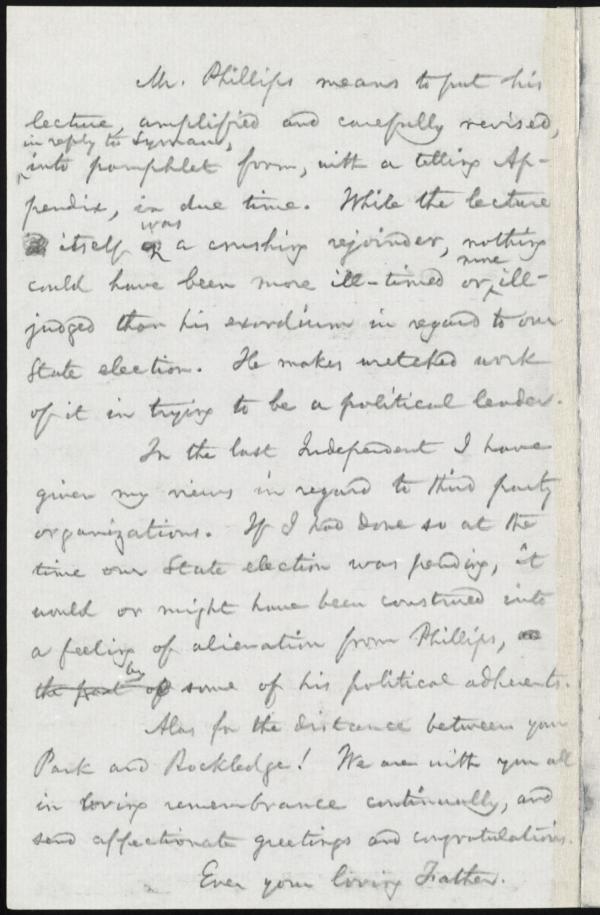 Mr. Phillips means to put his
lecture, amplified and carefully revised,
in reply to Lyman,
into pamphlet form, with a telling Ap-
pendix, in due time. While the lecture
was
itself a crushing rejoinder, nothing
more
could have been more ill-timed or ill-
judged than his exordium in regard to our
State election. He makes wretched work
of it in trying to be a political leader.
In the last Independent I have
given my views in regard to third party
organizations. If I had done so at the
time our State election was pending, it
would or might have been construed into
a feeling of alienation from Phillips,
by
the part of some of his political adherents.
Alas for the distance between your
Park and Rockledge! We are with you all
in loving remembrance continually, and
send affectionate greetings and congratulations.
Ever your loving Father.